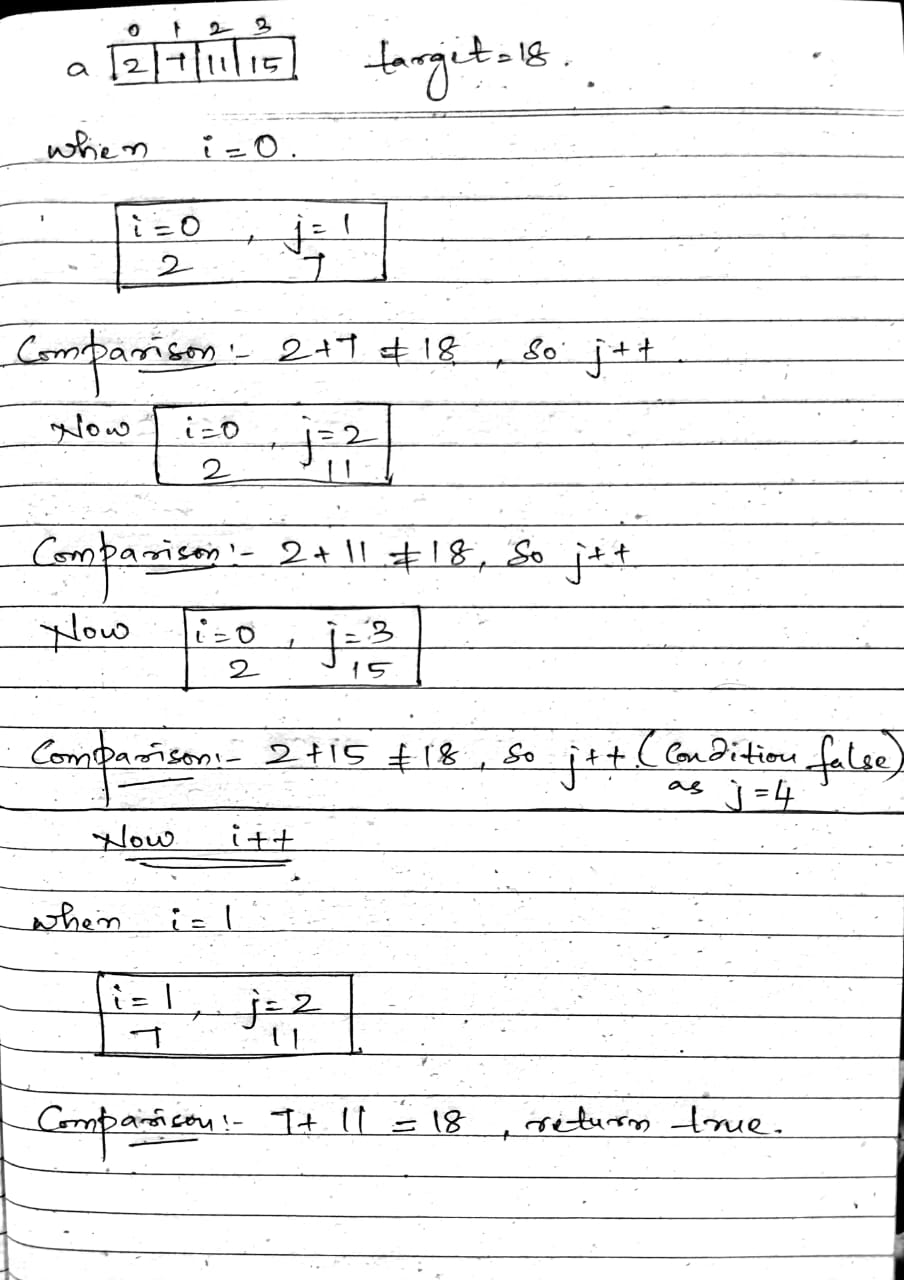 0 1 2 3
a 2 7 11 15 target=18.
when i=0.
i=0 , j=1
2 7
Comparison:- 2+7 ≠ 18 , so j++
Now i=0 , j=2
2 11
Comparison:- 2+11 ≠ 18, So j++
Now i=0 , j=3
2 15
Comparison:- 2+15 ≠ 18 , so j++ (Condition false)
as j=4
Now i++
when i=1
i=1, j=2
7 11
Comparison:- 7+11 = 18 , return true.